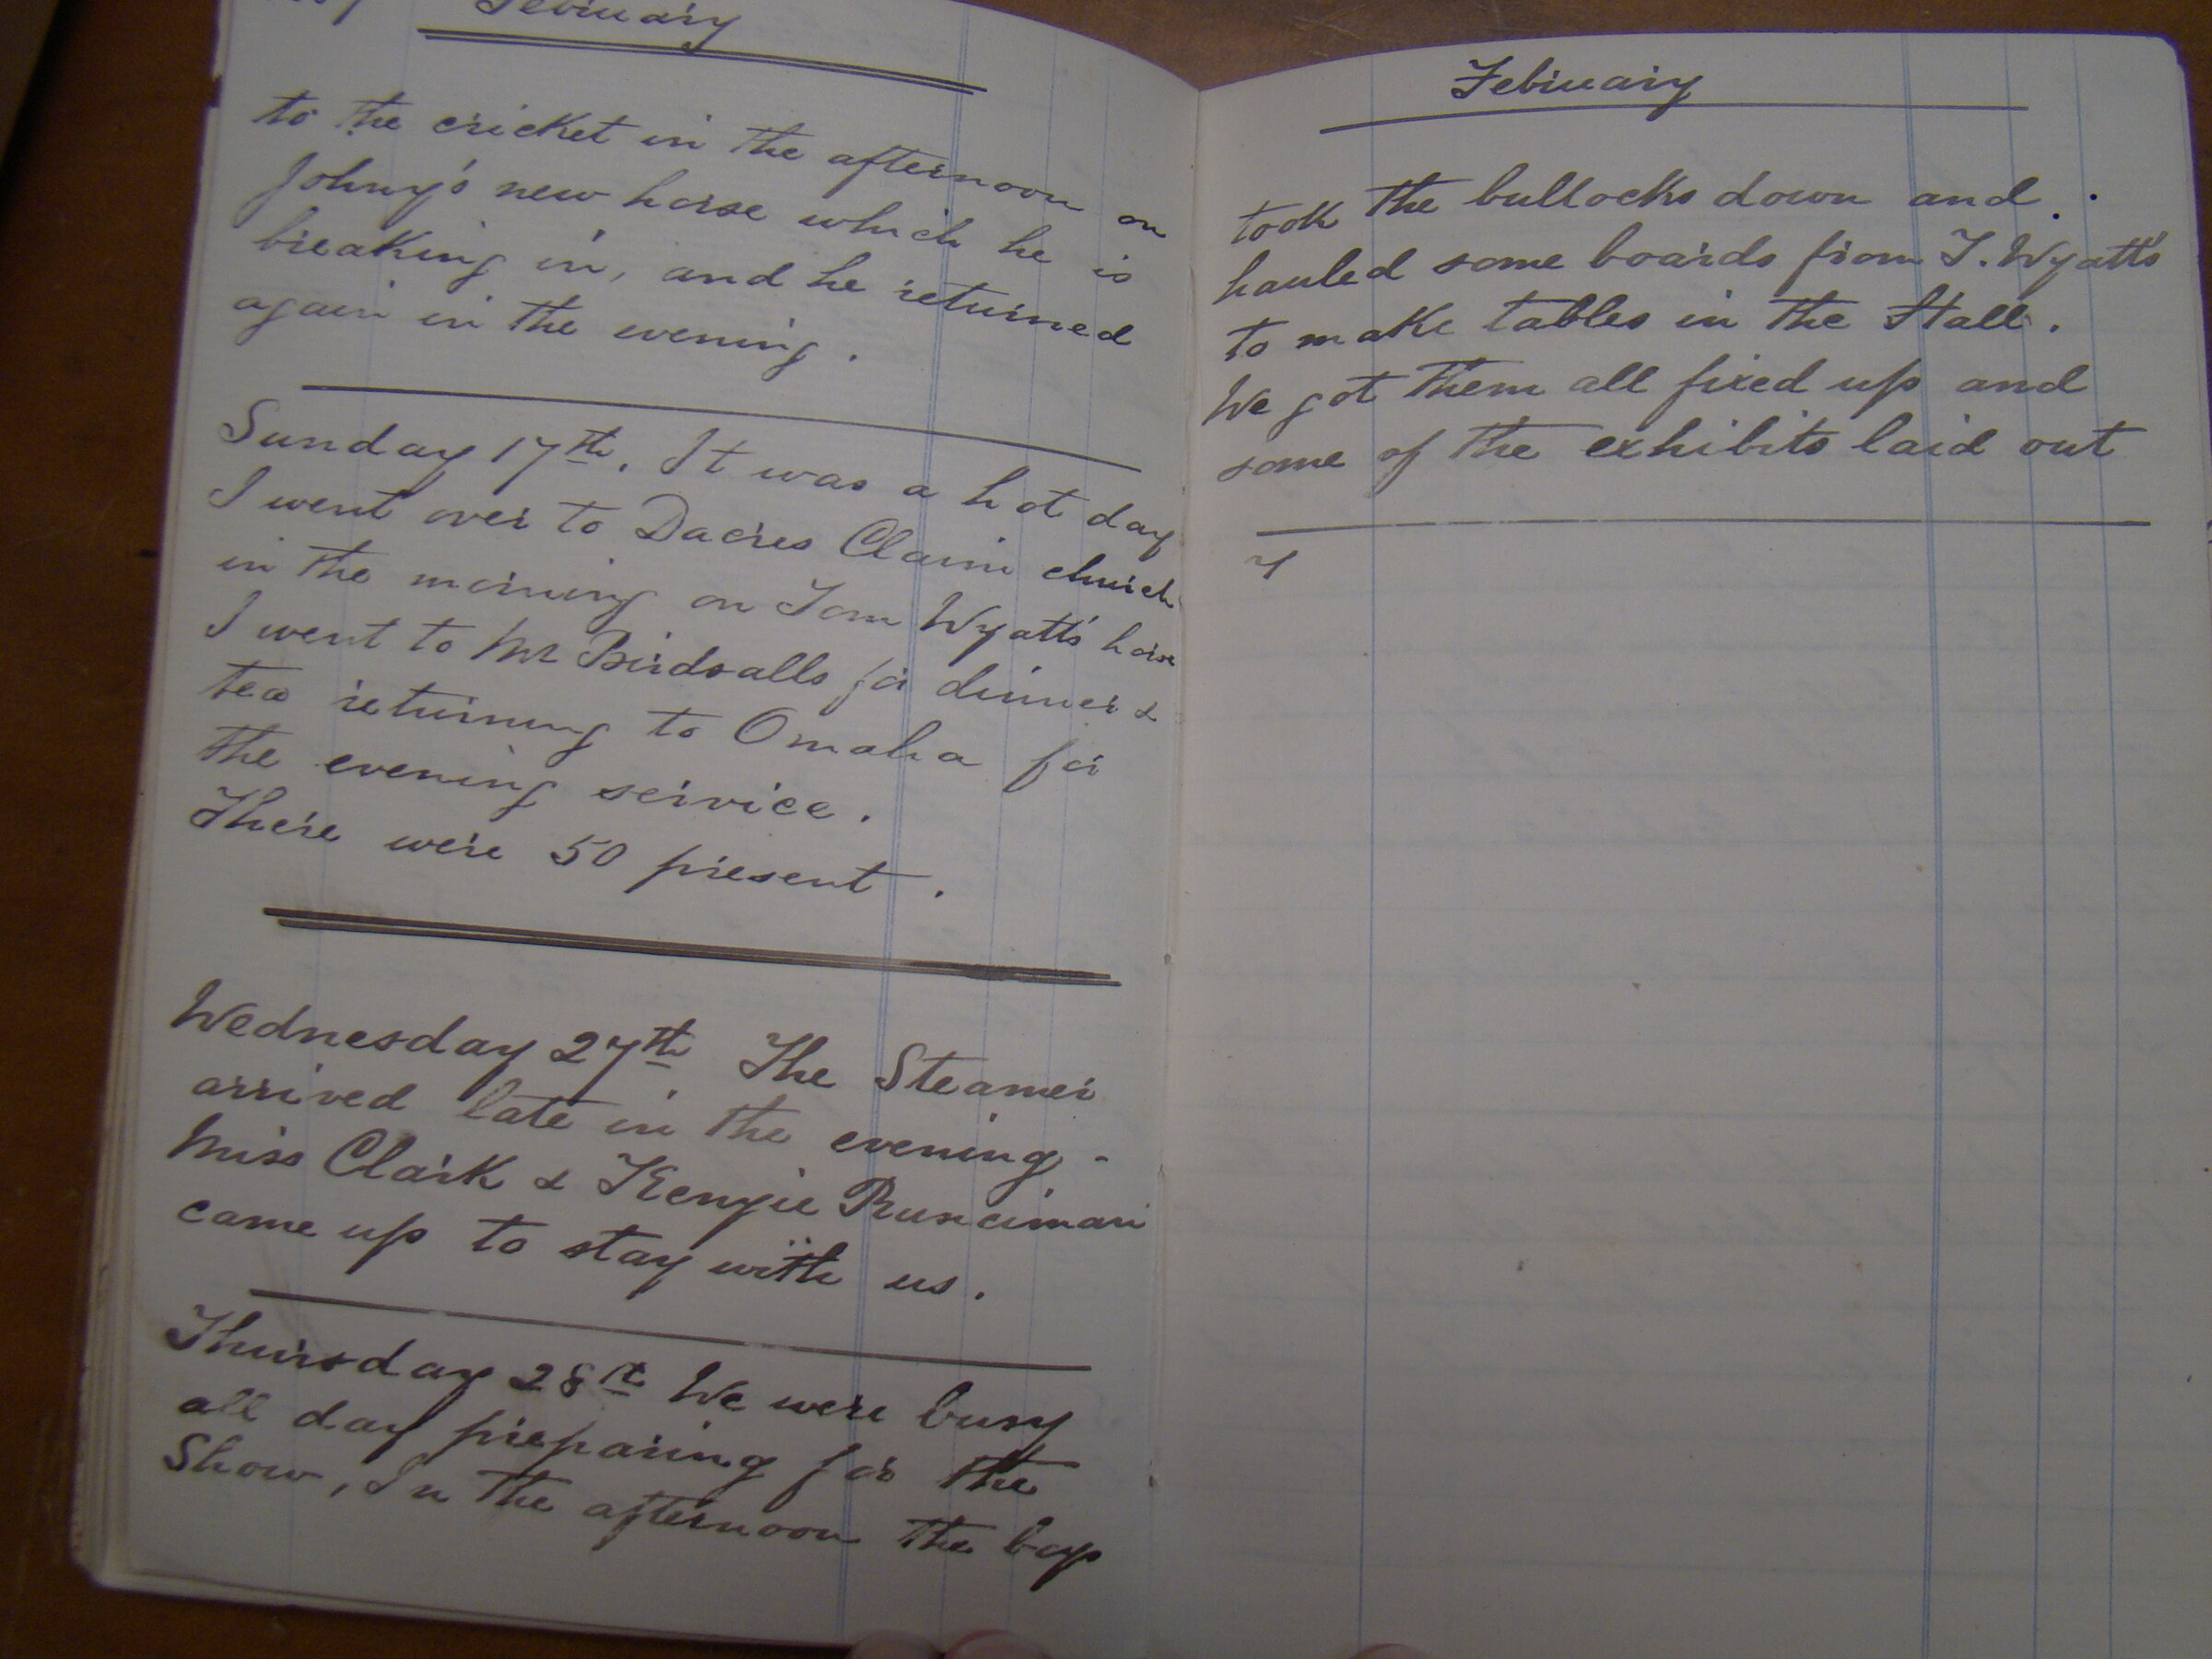 February
to the cricket in the afternoon on
Johny's new horse which he is
breaking in, and he returned
again in the evening.
Sunday 17th. It was a hot day
I went over to Dacres Claim church
in the morning on Tom Wyatt's horse
I went to Mr Birdsalls for dinner &
tea returning to Omaha for
the evening service.
There were 50 present.
Wednesday 27th The Steamer
arrived late in the evening -
Miss Clark & Kenzie Runciman
came up to stay with us.
Thursday 28th We were busy
all day preparing for the
Show, In the afternoon the boys
February
took the bullocks down and
hauled some boards from T. Wyatt's
to make tables in the Hall.
We got them all fixed up and
some of the exhibits laid out